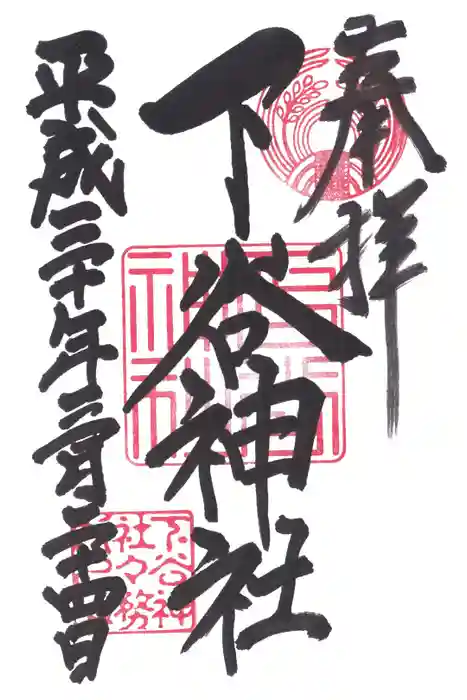 奉拝
下谷神社
平成三十年三月二十四日
下谷神
社々務